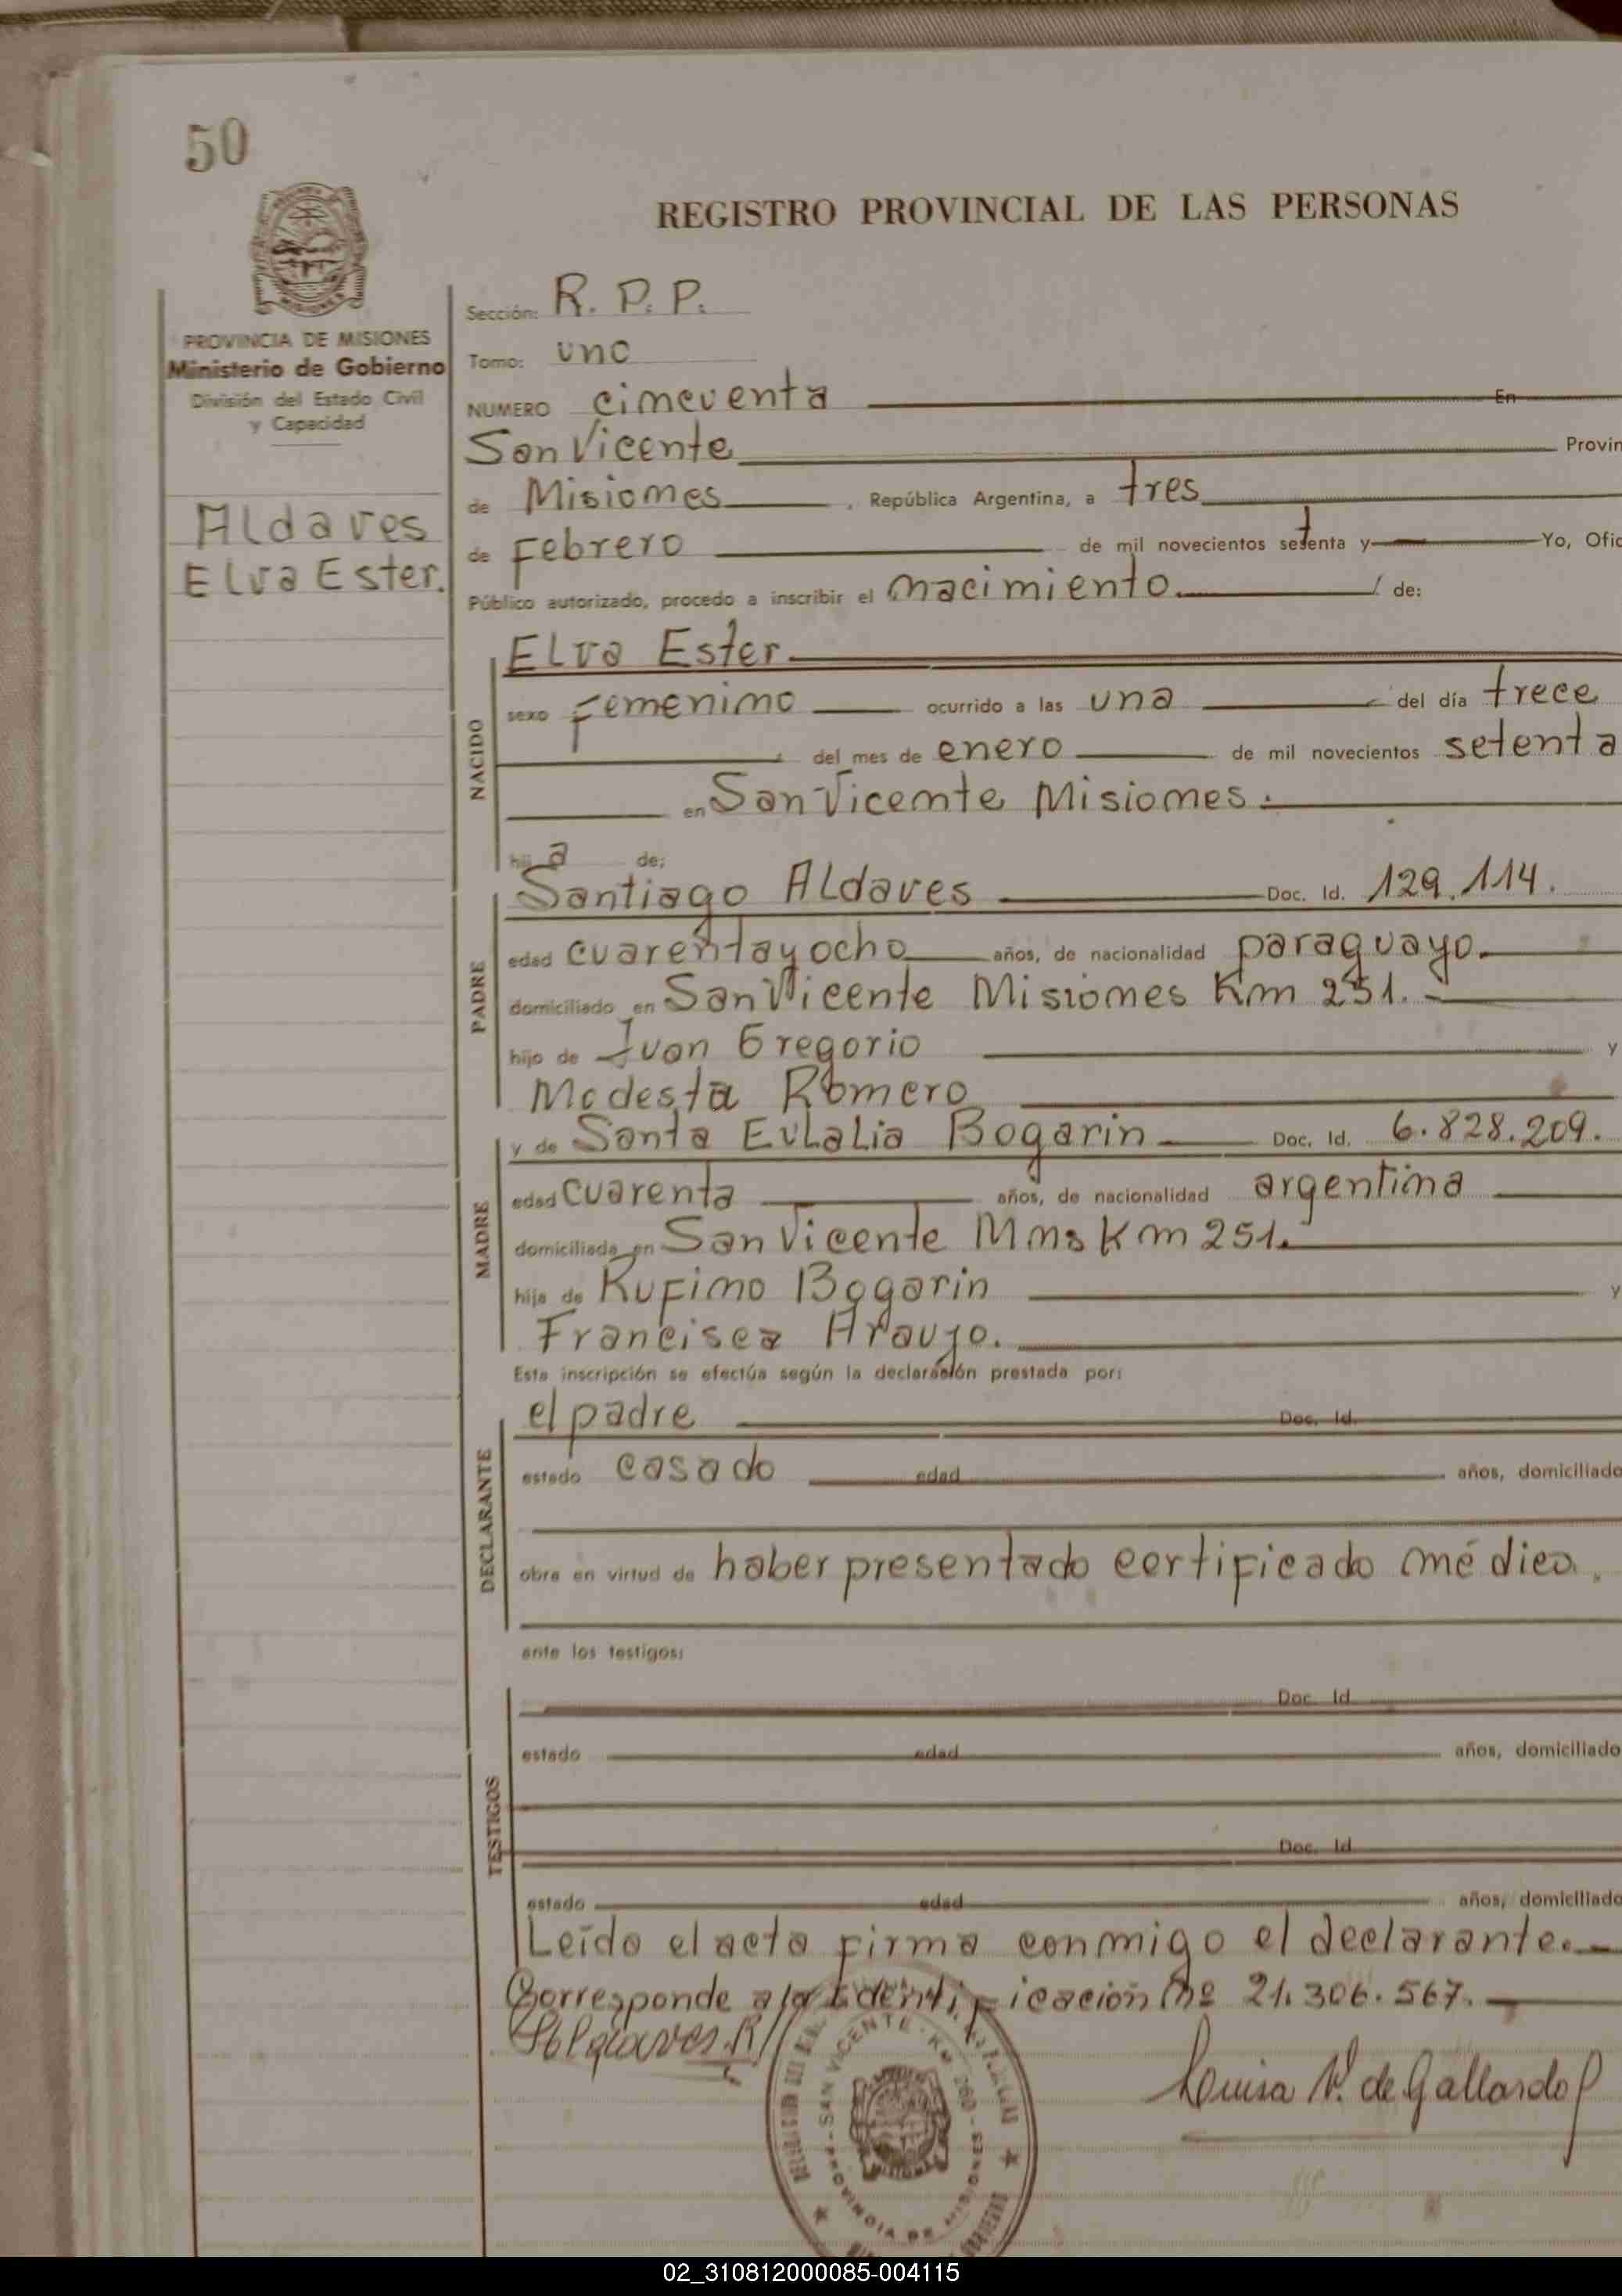 50
REGISTRO PROVINCIAL DE LAS PERSONAS
PROVINCIA DE MISIONES
Ministerio de Gobierno
División del Estado Civil
y Capacidad
Aldaves
Elva Ester.
Sección: R. P. P.
Tomo: uno
NUMERO cincuenta En
San Vicente Provin
de Misiones , República Argentina, a tres
de Febrero de mil novecientos setenta y Yo, Ofic
Público autorizado, procedo a inscribir el nacimiento. de:
NACIDO
Elva Ester
sexo Femenino ocurrido a las una del día trece
del mes de enero de mil novecientos setenta
en San Vicente Misiones.
hij a de:
PADRE
Santiago Aldaves Doc. Id. 129.114.
edad cuarentayocho años, de nacionalidad paraguayo.
domiciliado en San Vicente Misiones Km 251.
hijo de Juan Gregorio y
Modesta Romero
MADRE
y de Santa Eulalia Bogarin Doc. Id. 6.828.209.
edad cuarenta años, de nacionalidad argentina
domiciliada en San Vicente Mnes Km 251.
hija de Rufino Bogarin y
Francisca Araujo.
Esta inscripción se efectúa según la declaración prestada por:
DECLARANTE
el padre Doc. Id.
estado casado edad años, domiciliado
obra en virtud de haber presentado certificado médico.
ante los testigos:
TESTIGOS
Doc. Id.
estado edad años, domiciliado
Doc. Id.
estado edad años, domiciliado
Leído el acta firma conmigo el declarante.
Corresponde a la Identificación Nº 21.306.567.
Luisa V. de Gallardo
SAN VICENTE - Km 260 -
PROVINCIA DE MISIONES
02_310812000085-004115